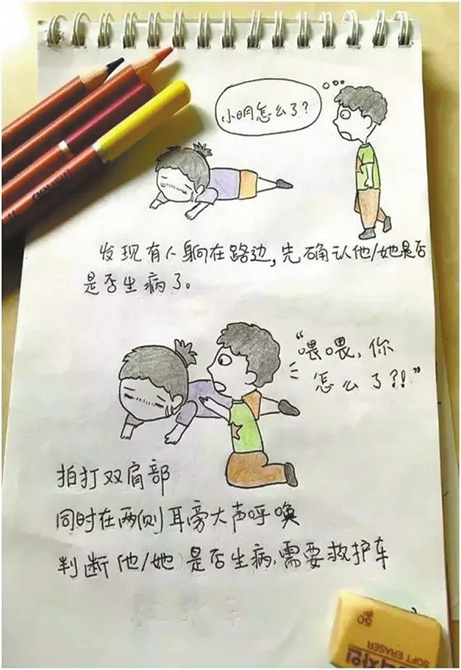 小明怎么了?
发现有人躺在路边,先确认他/她是否
是否生病了。
“喂喂,你
怎么了?!”
拍打双肩部
同时在两侧耳旁大声呼唤
判断他/她是否生病,需要救护车
50
SOFT ERASER